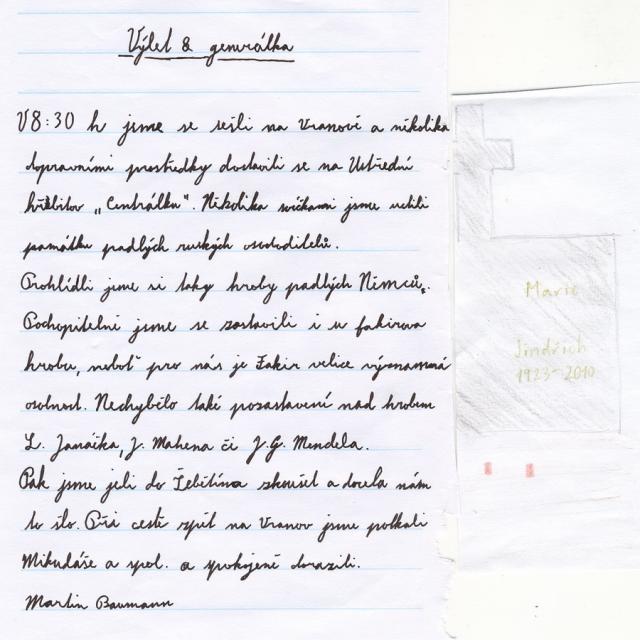 Výlet & generálka
V 8:30 h jsme se sešli na Vranově a několika
dopravními prostředky dostavili se na Ústřední
hřbitov „Centrálku". Několika svíčkami jsme uctili
památku padlých ruských osvoboditelů.
Prohlédli jsme si taky hroby padlých Němců.
Pochopitelně jsme se zastavili i u fakirova
hrobu, neboť pro nás je Fakir velice významná
osobnost. Nechybělo také pozastavení nad hrobem
L. Janáčka, J. Mahena či J.G. Mendela.
Pak jsme jeli do Žebětína zkoušet a docela nám
to šlo. Při cestě zpět na Vranov jsme potkali
Mikuláše a spol. a spokojeně dorazili.
Martin Baumann
Marie
Jindřich
1923-2010